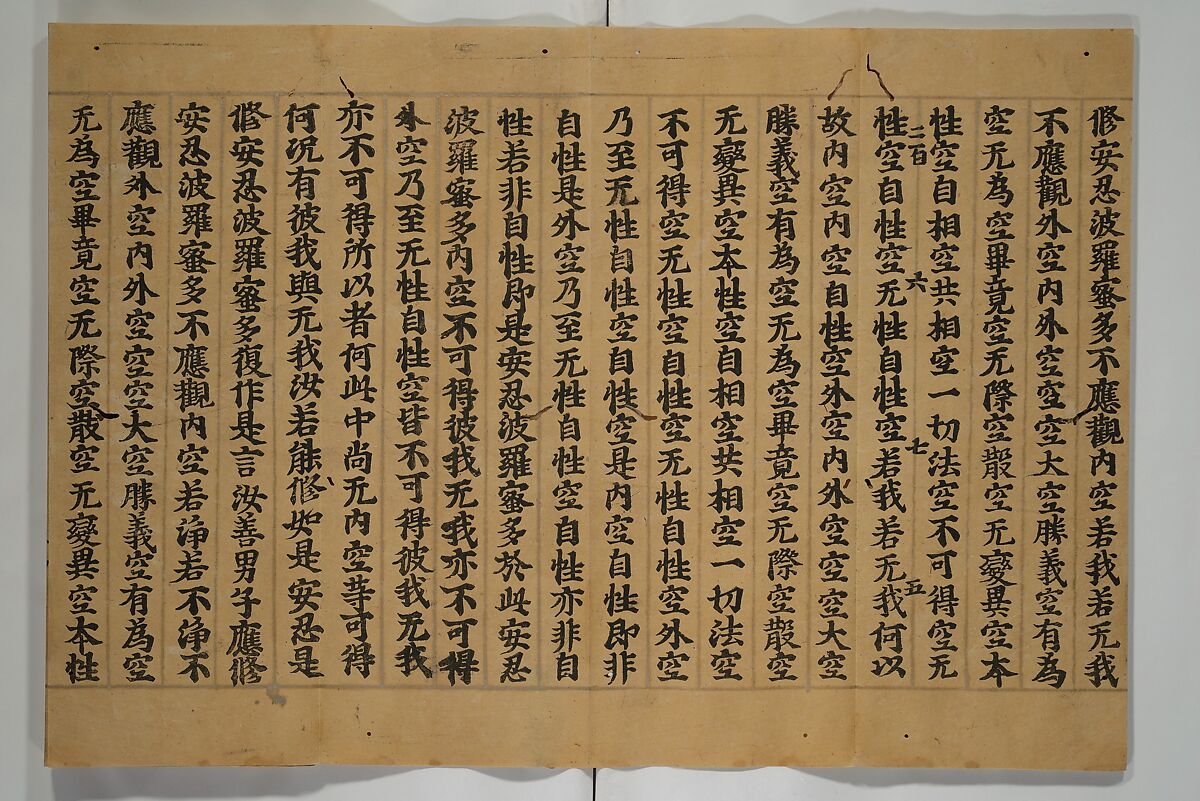 修安忍波羅蜜多不應觀内空若我若无我
不應觀外空内外空空空大空勝義空有為
空无為空畢竟空无際空散空无變異空本
性空自相空共相空一切法空不可得空无
二百 六 七 五
性空自性空无性自性空若我若无我何以
故内空内空自性空外空内外空空空大空
勝義空有為空无為空畢竟空无際空散空
无變異空本性空自相空共相空一切法空
不可得空无性空自性空无性自性空外空
乃至无性自性空自性空是内空自性即非
自性是外空乃至无性自性空自性亦非自
性若非自性即是安忍波羅蜜多於此安忍
波羅蜜多内空不可得彼我无我亦不可得
外空乃至无性自性空皆不可得彼我无我
亦不可得所以者何此中尚无内空等可得
何況有彼我與无我汝若能修如是安忍是
修安忍波羅蜜多復作是言汝善男子應修
安忍波羅蜜多不應觀内空若浄若不浄不
應觀外空内外空空空大空勝義空有為空
无為空畢竟空无際空散空无變異空本性